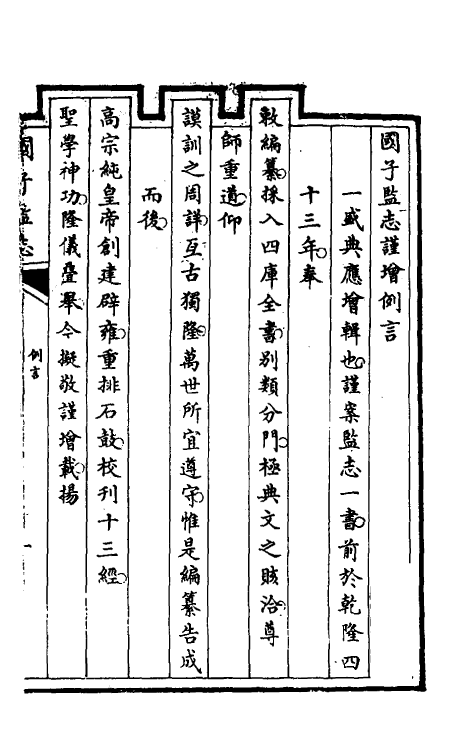 國子監志謹增例言
一盛典應增輯也謹案監志一書前於乾隆四
十三年奉
敕編纂採入四庫全書別類分門極典文之賅洽尊
師重道仰
謨訓之周詳互古獨隆萬世所宜遵守惟是編纂告成
而後
高宗純皇帝創建辟雍重排石鼓校刊十三經
聖學神功隆儀疊舉今擬敬謹增載揚
國子監志
例言
一